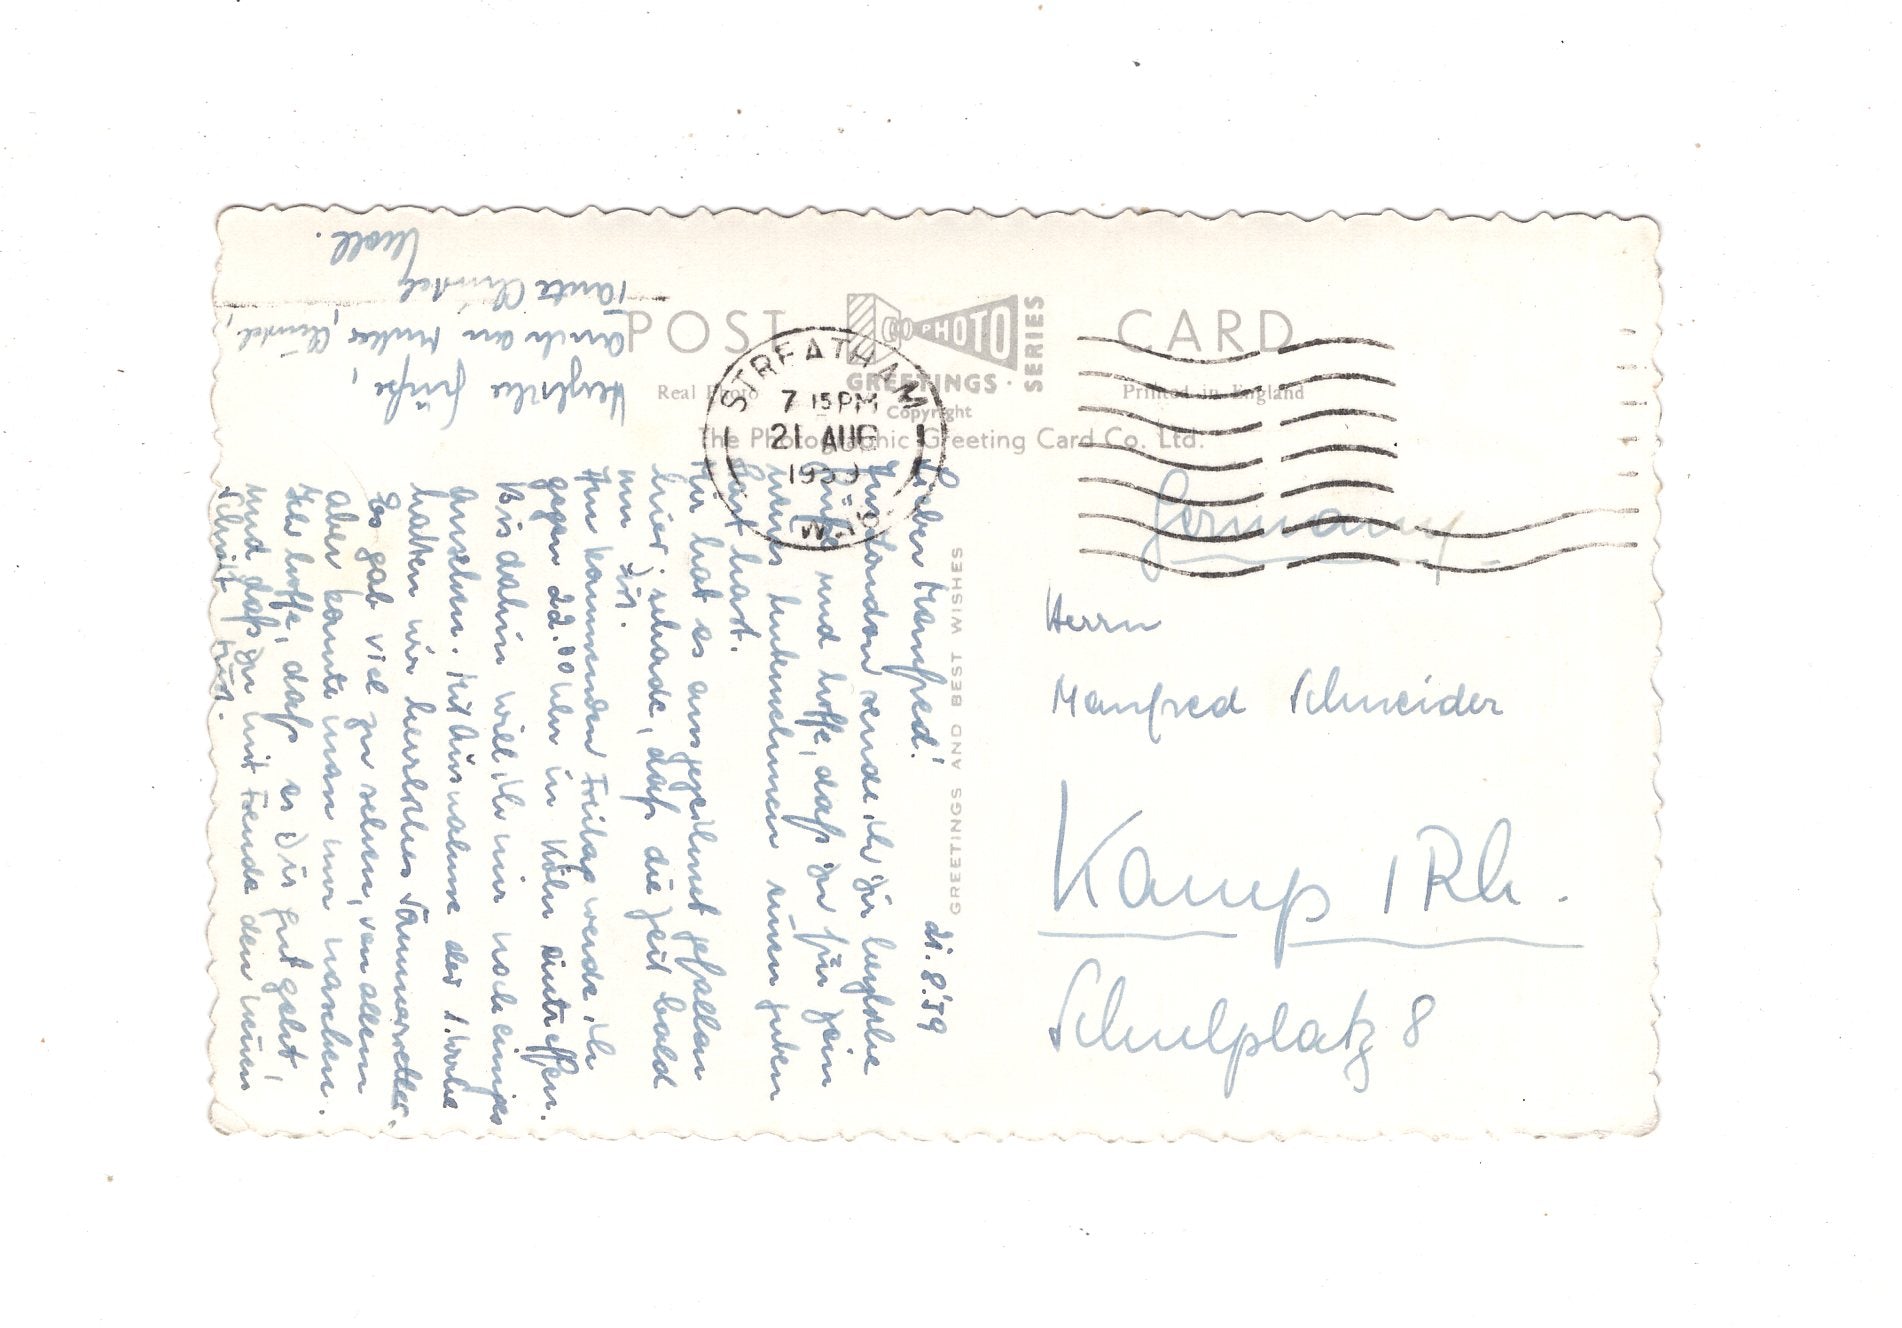 POST CARD
GO PHOTO
GREETINGS
SERIES
Real Photo
Copyright
Printed in England
The Photographic Greeting Card Co. Ltd.
STREATHAM
7 15 PM
21 AUG
1959
S.W.16
GREETINGS AND BEST WISHES
21.8.59
Lieber Manfred!
Aus London sende ich Dir herzliche
Grüße und hoffe, daß Du für Dein
neues Unternehmen einen guten
Start hast.
Mir hat es ausgezeichnet gefallen
hier, schade, daß die Zeit bald
um ist.
Am kommenden Freitag werde ich
gegen 22.00 Uhr in Köln eintreffen.
Bis dahin will ich mir noch einiges
ansehen. Mit Ausnahme der 1. Woche
hatten wir herrliches Sommerwetter.
Es gab viel zu sehen, von allem
aber konnte man nur naschen.
Ich hoffe, daß es Dir gut geht,
und daß Du mit Freude den neuen
Schritt tust.
Herzliche Grüße,
auch an Mutter, Christel,
Tante Christel
Germany
Herrn
Manfred Schneider
Kamp / Rh.
Schulplatz 8